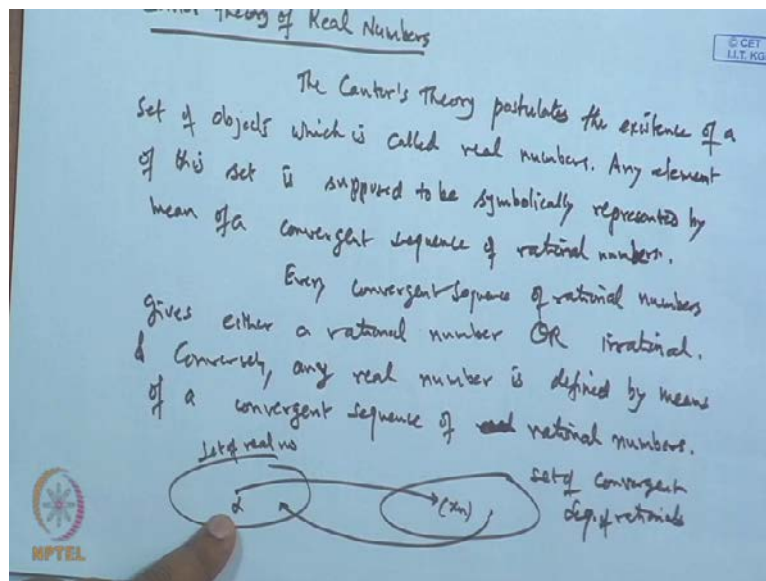 Theory of Real Numbers
© CET
I.I.T. KG
The Cantor's Theory postulates the existence of a
set of objects which is called real numbers. Any element
of this set is supposed to be symbolically represented by
mean of a convergent sequence of rational numbers.
Every convergent sequence of rational numbers
gives either a rational number OR irrational.
& Conversely, any real number is defined by means
of a convergent sequence of rational numbers.
Set of real no
α
(xn)
set of convergent
seq. of rationals
NPTEL